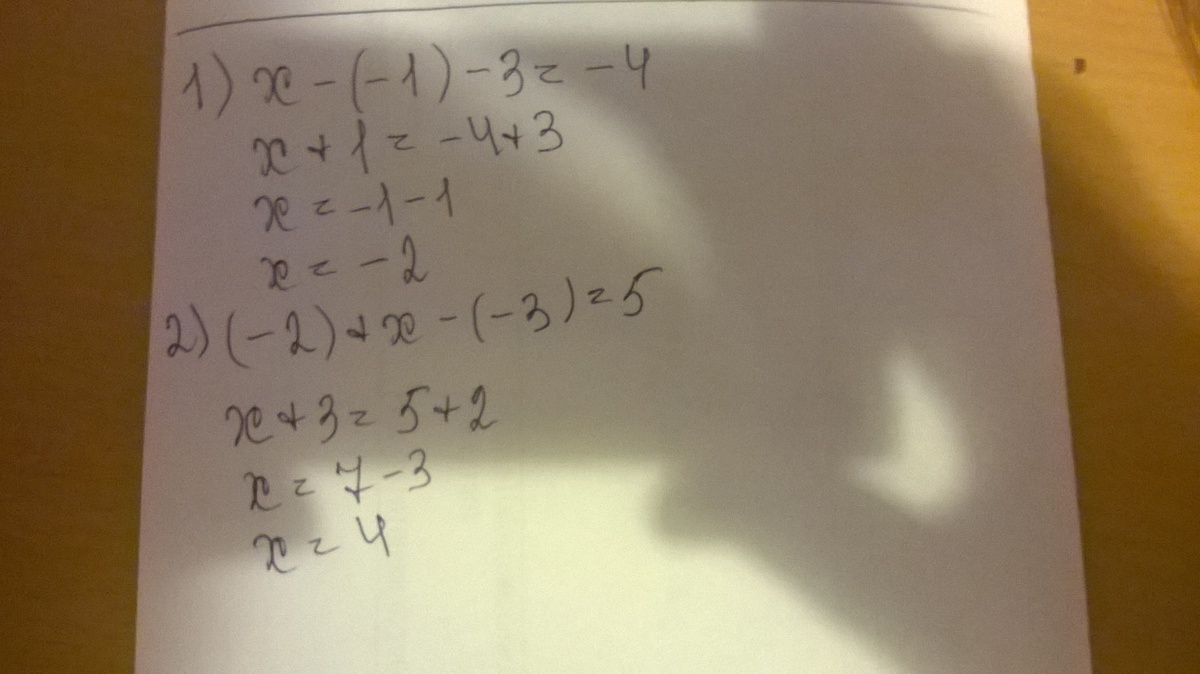 1) x - (-1) - 3 = -4
x + 1 = -4 + 3
x = -1 - 1
x = -2
2) (-2) + x - (-3) = 5
x + 3 = 5 + 2
x = 7 - 3
x = 4